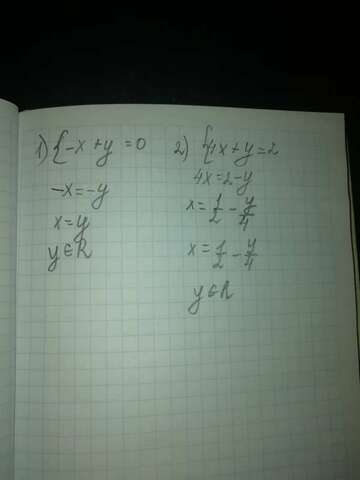 1) { -x + y = 0
-x = -y
x = y
y ∈ R
2) { 4x + y = 2
4x = 2 - y
x = 1/2 - y/4
x = 1/2 - y/4
y ∈ R